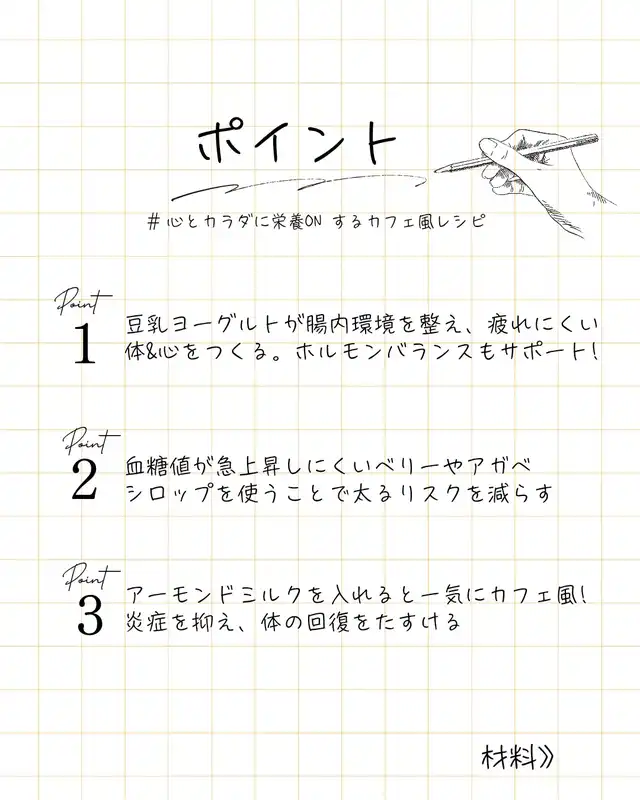 ポイント
#心とカラダに栄養ON するカフェ風レシピ
Point
1
豆乳ヨーグルトが腸内環境を整え、疲れにくい
体&心をつくる。ホルモンバランスもサポート!
Point
2
血糖値が急上昇しにくいベリーやアガベ
シロップを使うことで太るリスクを減らす
Point
3
アーモンドミルクを入れると一気にカフェ風!
炎症を抑え、体の回復をたすける
材料》